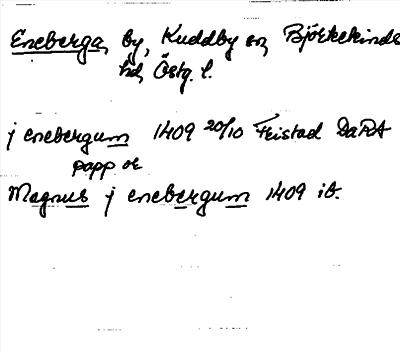 Eneberga, by, Kuddby sn, Björkekinds
hd, Östg. l.
j enebergum 1409 20/10 Feistad DaRA
papp or
Magnus j enebergum 1409 ib.